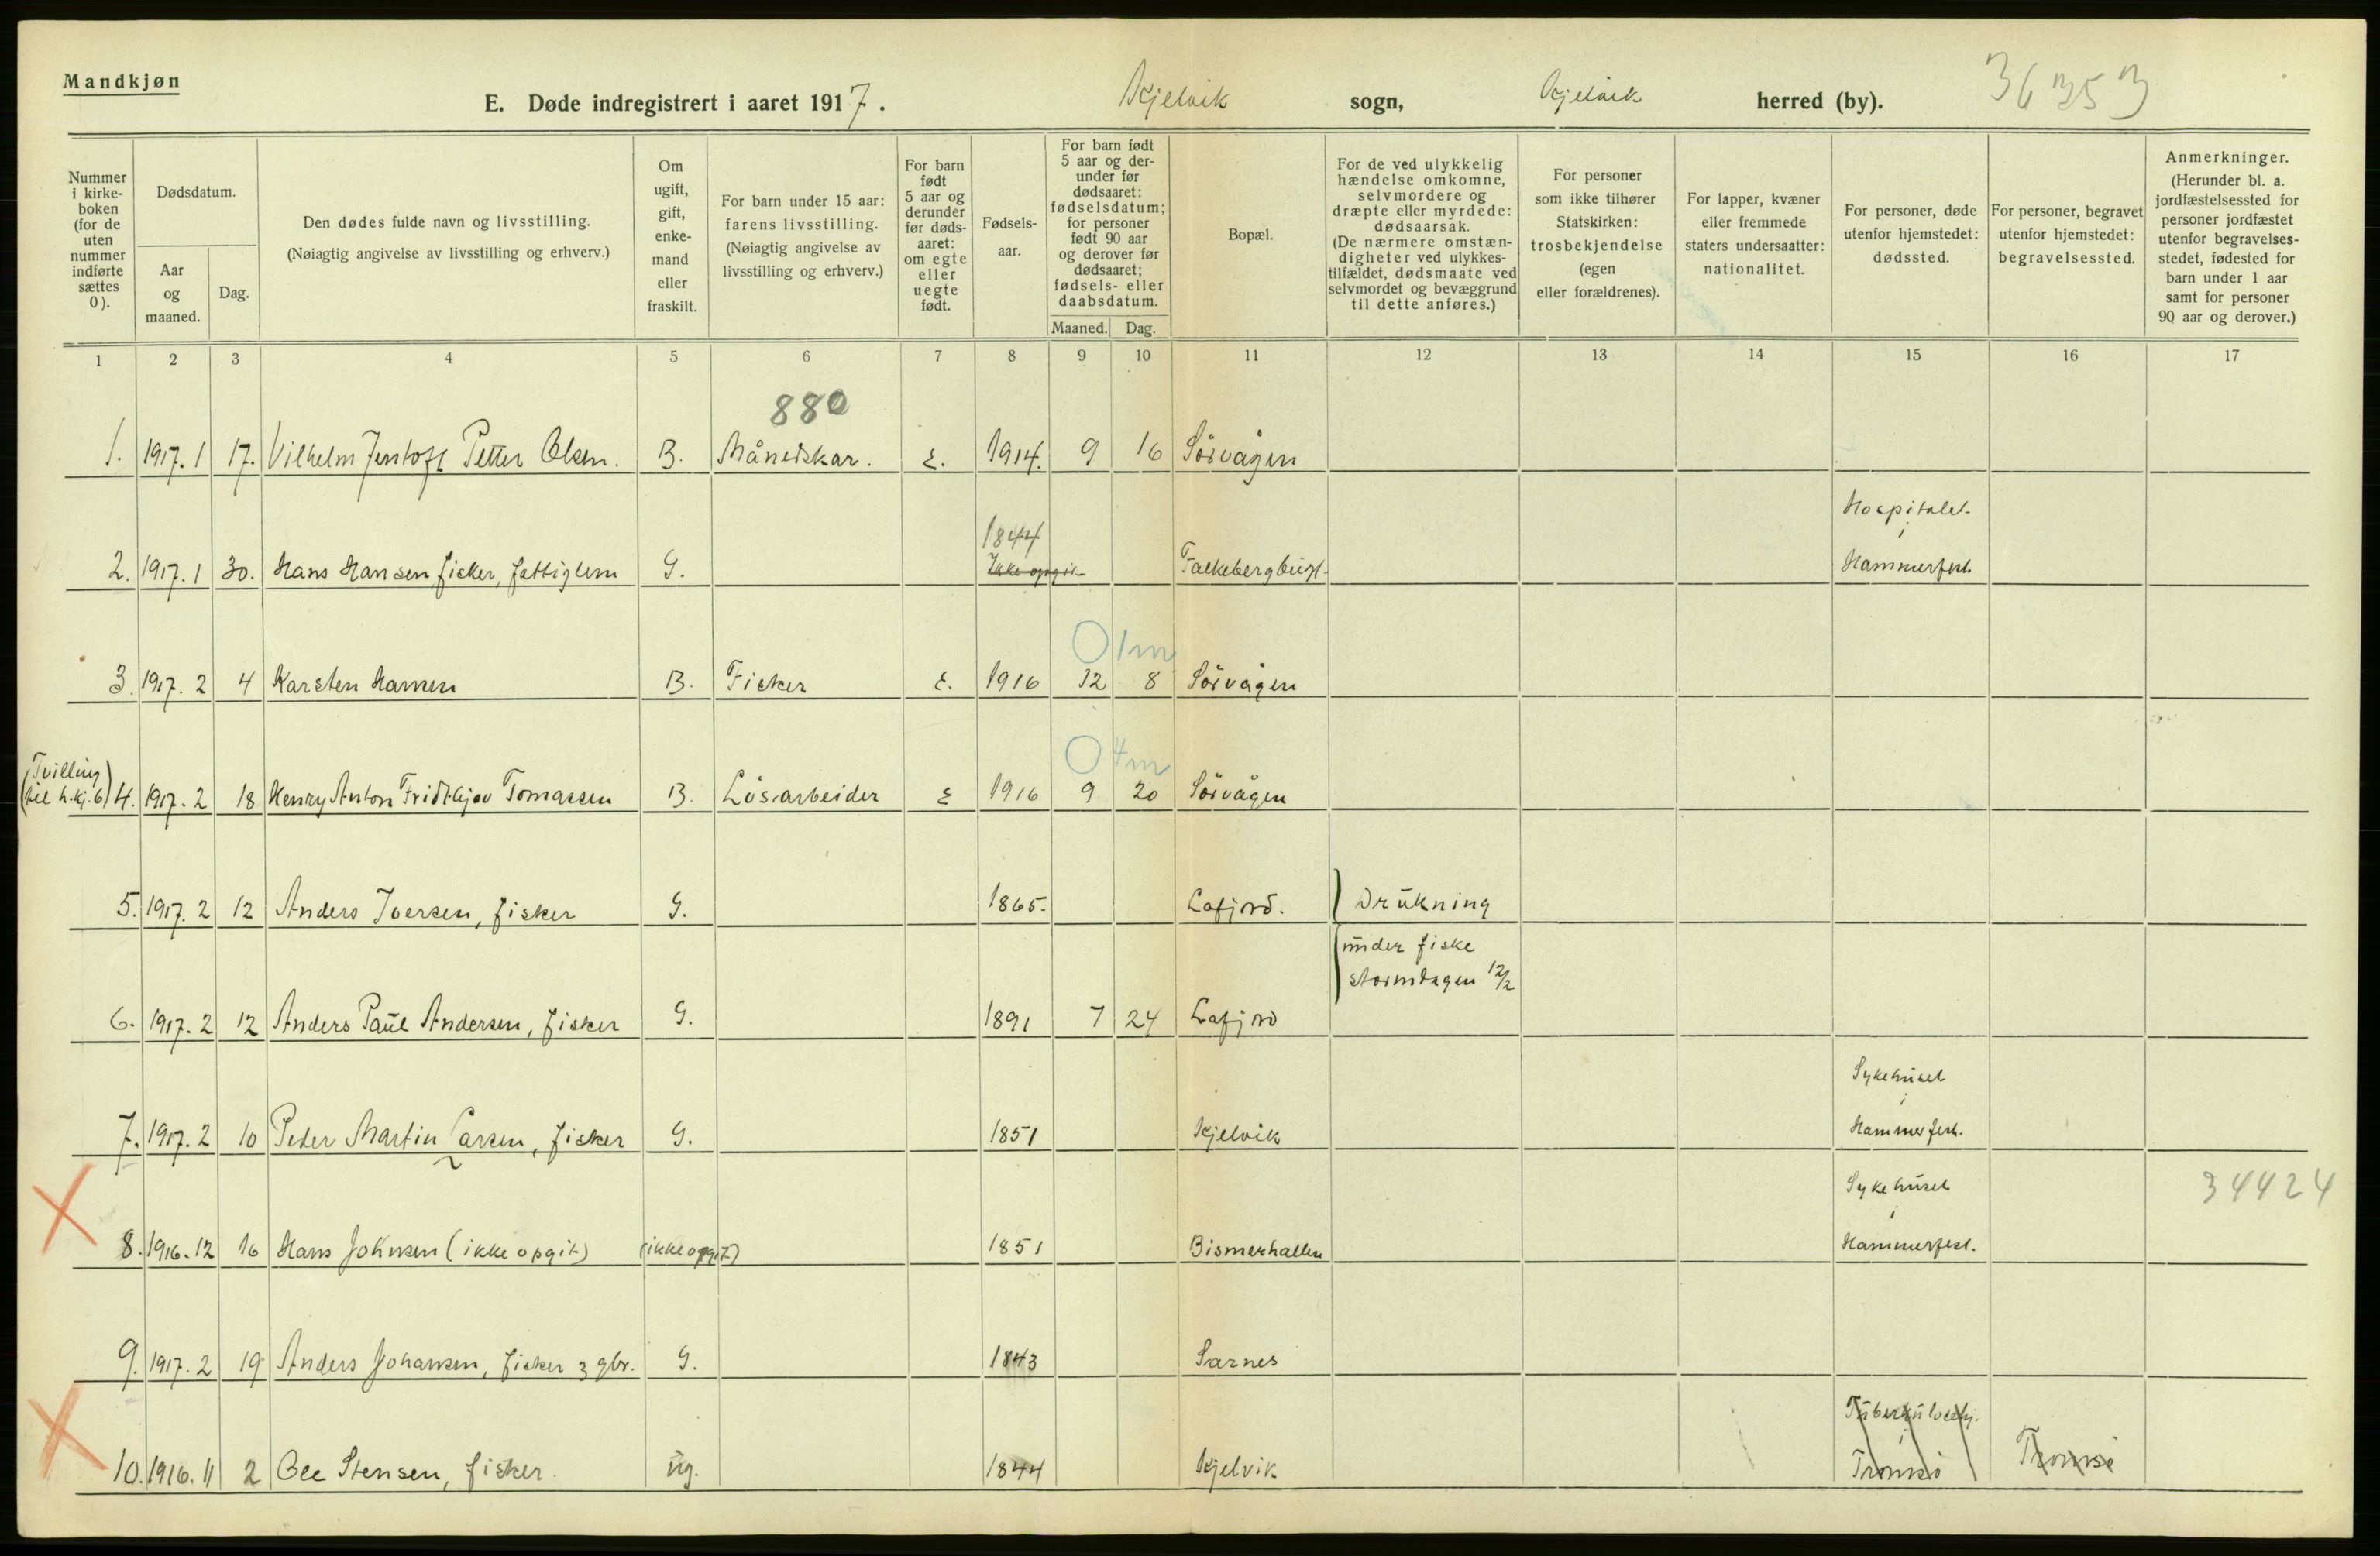 Mandkjøn
E. Døde indregistrert i aaret 1917. Kjelvik sogn, Kjelvik herred (by). 36353
Nummer i kirkeboken (for de uten nummer indførte sættes 0).
Dødsdatum.
Aar og maaned.
Dag.
Den dødes fulde navn og livsstilling.
(Nøiagtig angivelse av livsstilling og erhverv.)
Om ugift, gift, enkemand eller fraskilt.
For barn under 15 aar: farens livsstilling.
(Nøiagtig angivelse av livsstilling og erhverv.)
For barn født 5 aar og derunder før dødsaaret: om egte eller uegte født.
Fødselsaar.
For barn født 5 aar og derunder før dødsaaret: fødselsdatum; for personer født 90 aar og derover før dødsaaret; fødsels- eller daabsdatum.
Maaned. Dag.
Bopæl.
For de ved ulykkelig hændelse omkomne, selvmordere og dræpte eller myrdede: dødsaarsak.
(De nærmere omstændigheter ved ulykkestilfældet, dødsmaate ved selvmordet og bevæggrund til dette anføres.)
For personer som ikke tilhører Statskirken: trosbekjendelse (egen eller forældrenes).
For lapper, kvæner eller fremmede staters undersaatter: nationalitet.
For personer, døde utenfor hjemstedet: dødssted.
For personer, begravet utenfor hjemstedet: begravelsessted.
Anmerkninger.
(Herunder bl. a. jordfæstelsessted for personer jordfæstet utenfor begravelsesstedet, fødested for barn under 1 aar samt for personer 90 aar og derover.)
1 2 3 4 5 6 7 8 9 10 11 12 13 14 15 16 17
880
1. 1917. 1 17. Vilhelm Jentoft Petter Olsen. B. Månedskar. E. 1914. 9 16 Sörvågen
1844 Hospitalet i
2. 1917. 1 30. Hans Hansen fisker, fattiglem G. Ikke opgit Falkebergbugt. Hammerfest.
0 1 m
3. 1917. 2 4 Karsten Hansen B. Fisker E. 1916 12 8 Sörvågen
0 4 m
(Tvilling til h.kj. 6) 4. 1917. 2 18 Henry Anton Fridthjov Tomassen B. Lösarbeider E 1916 9 20 Sörvågen
5. 1917. 2 12 Anders Iversen, fisker G. 1865. Lafjord. Drukning
under fiske
stormdagen 12/2
6. 1917. 2 12 Anders Paul Andersen, fisker G. 1891 7 24 Lafjord
Sykehuset i
7. 1917. 2 10 Peder Martin Larsen, fisker G. 1851 Kjelvik Hammerfest.
Sykehuset i 34424
8. 1916. 12 16 Hans Johnsen (ikke opgit) (ikke opgit) 1851 Bismerhallen Hammerfest.
9. 1917. 2 19 Anders Johansen, fisker 3 gbr. G. 1843 Sarnes
Tuberkulosehj. i
10. 1916. 11 2 Ole Stensen, fisker. ug. 1844 Kjelvik Tromsö Tromsö